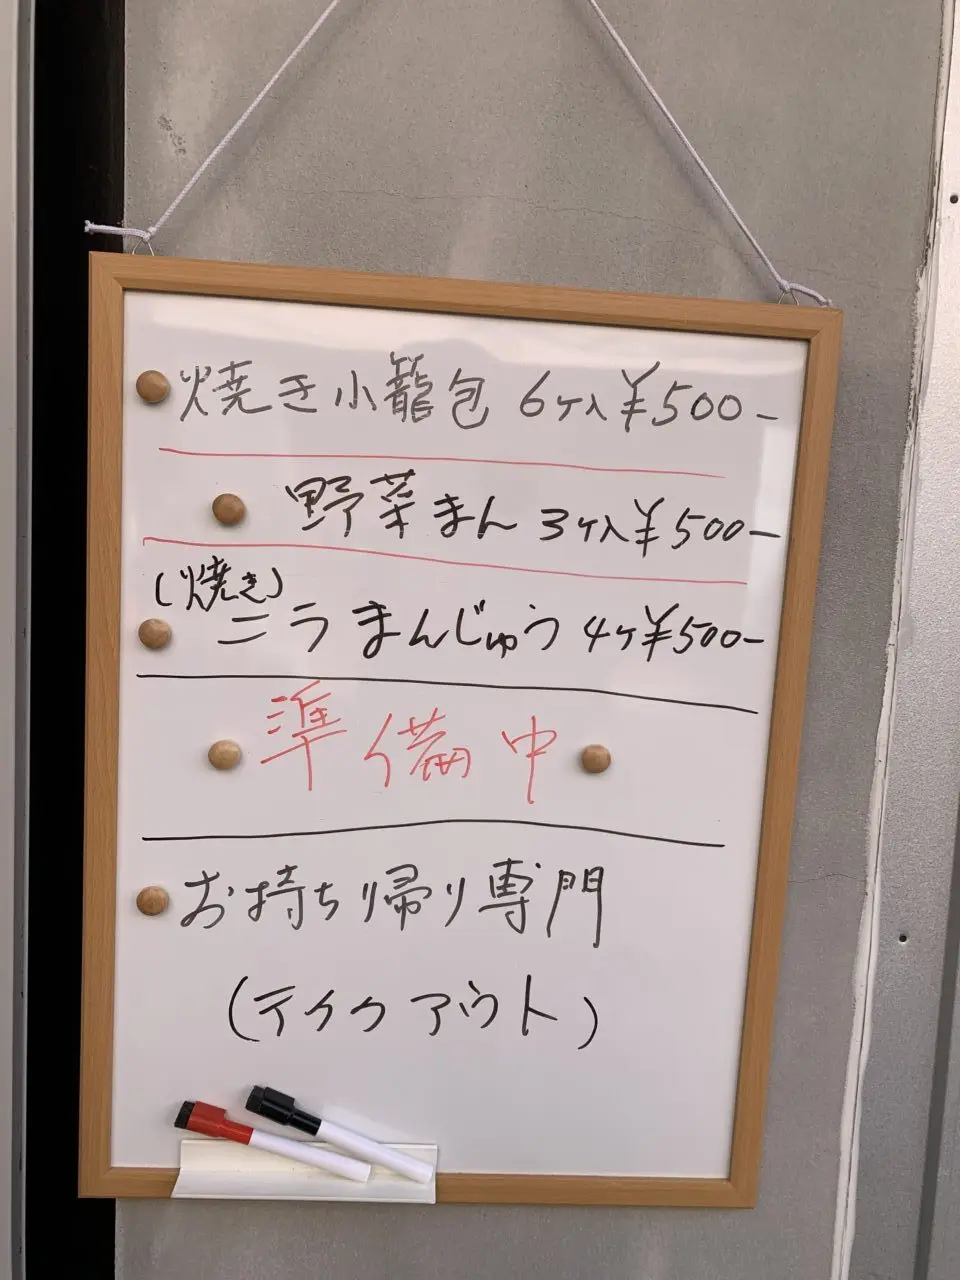 焼き小籠包 6ヶ入¥500-
野菜まん 3ヶ入¥500-
(焼き)
ニラまんじゅう 4ヶ¥500-
準備中
お持ち帰り専門
(テイクアウト)